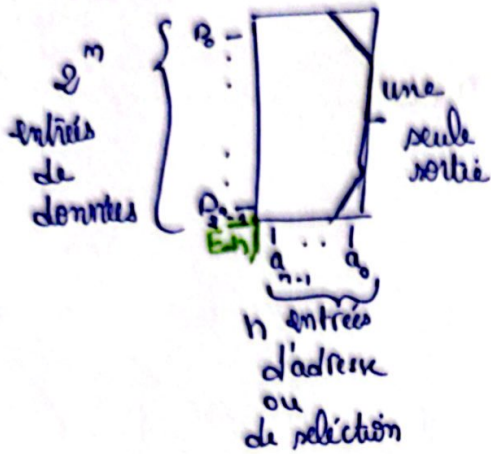 2^n
entrées
de
données
D_0
D_{2^n-1}
En
a_{n-1} .. a_0
une
seule
sortie
n entrées
d'adresse
ou
de séléction